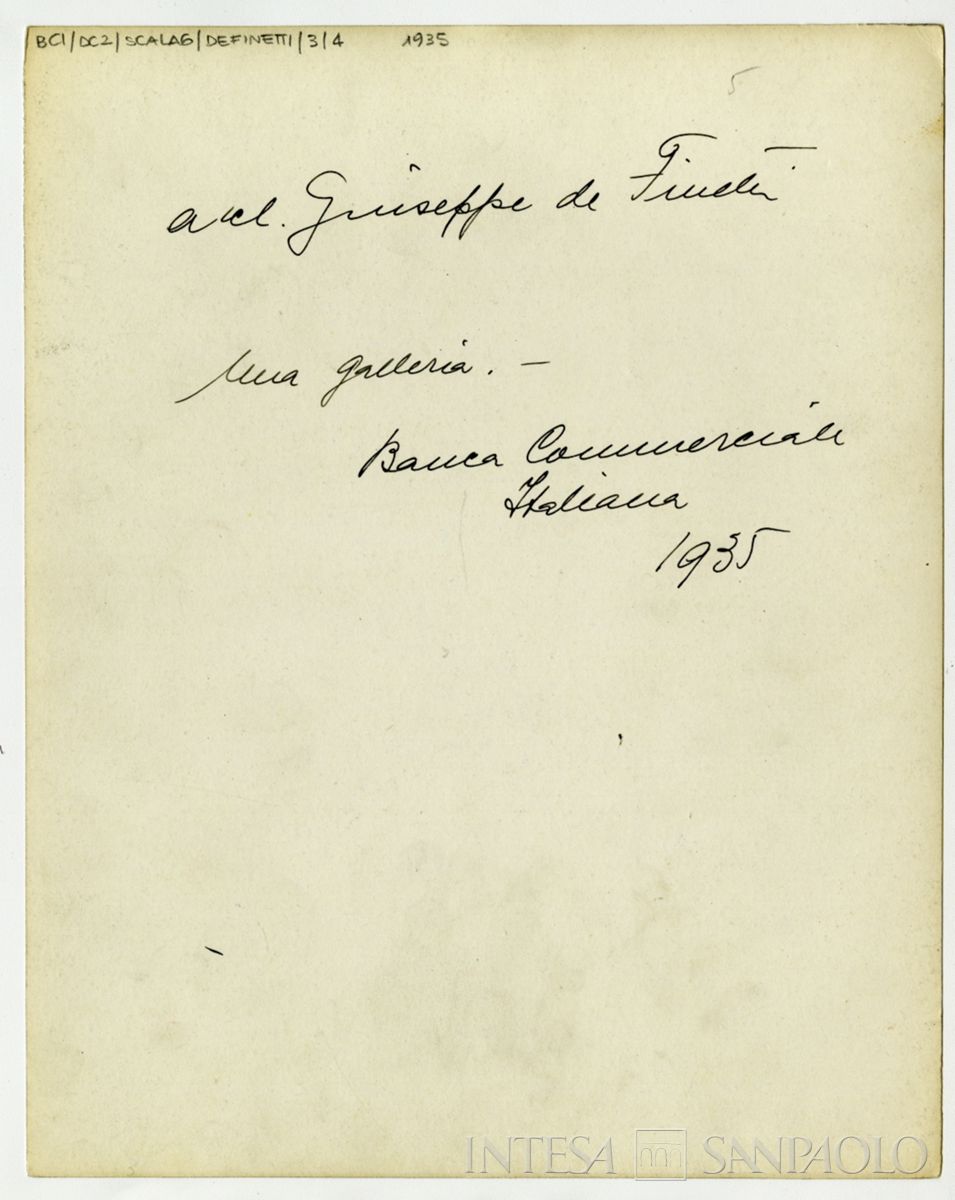 BCI/DC2/SCALA6/DEFINETTI/3/4 1935
5
arch. Giuseppe de Finetti
Una galleria. —
Banca Commerciale
Italiana
1935
INTESA SANPAOLO